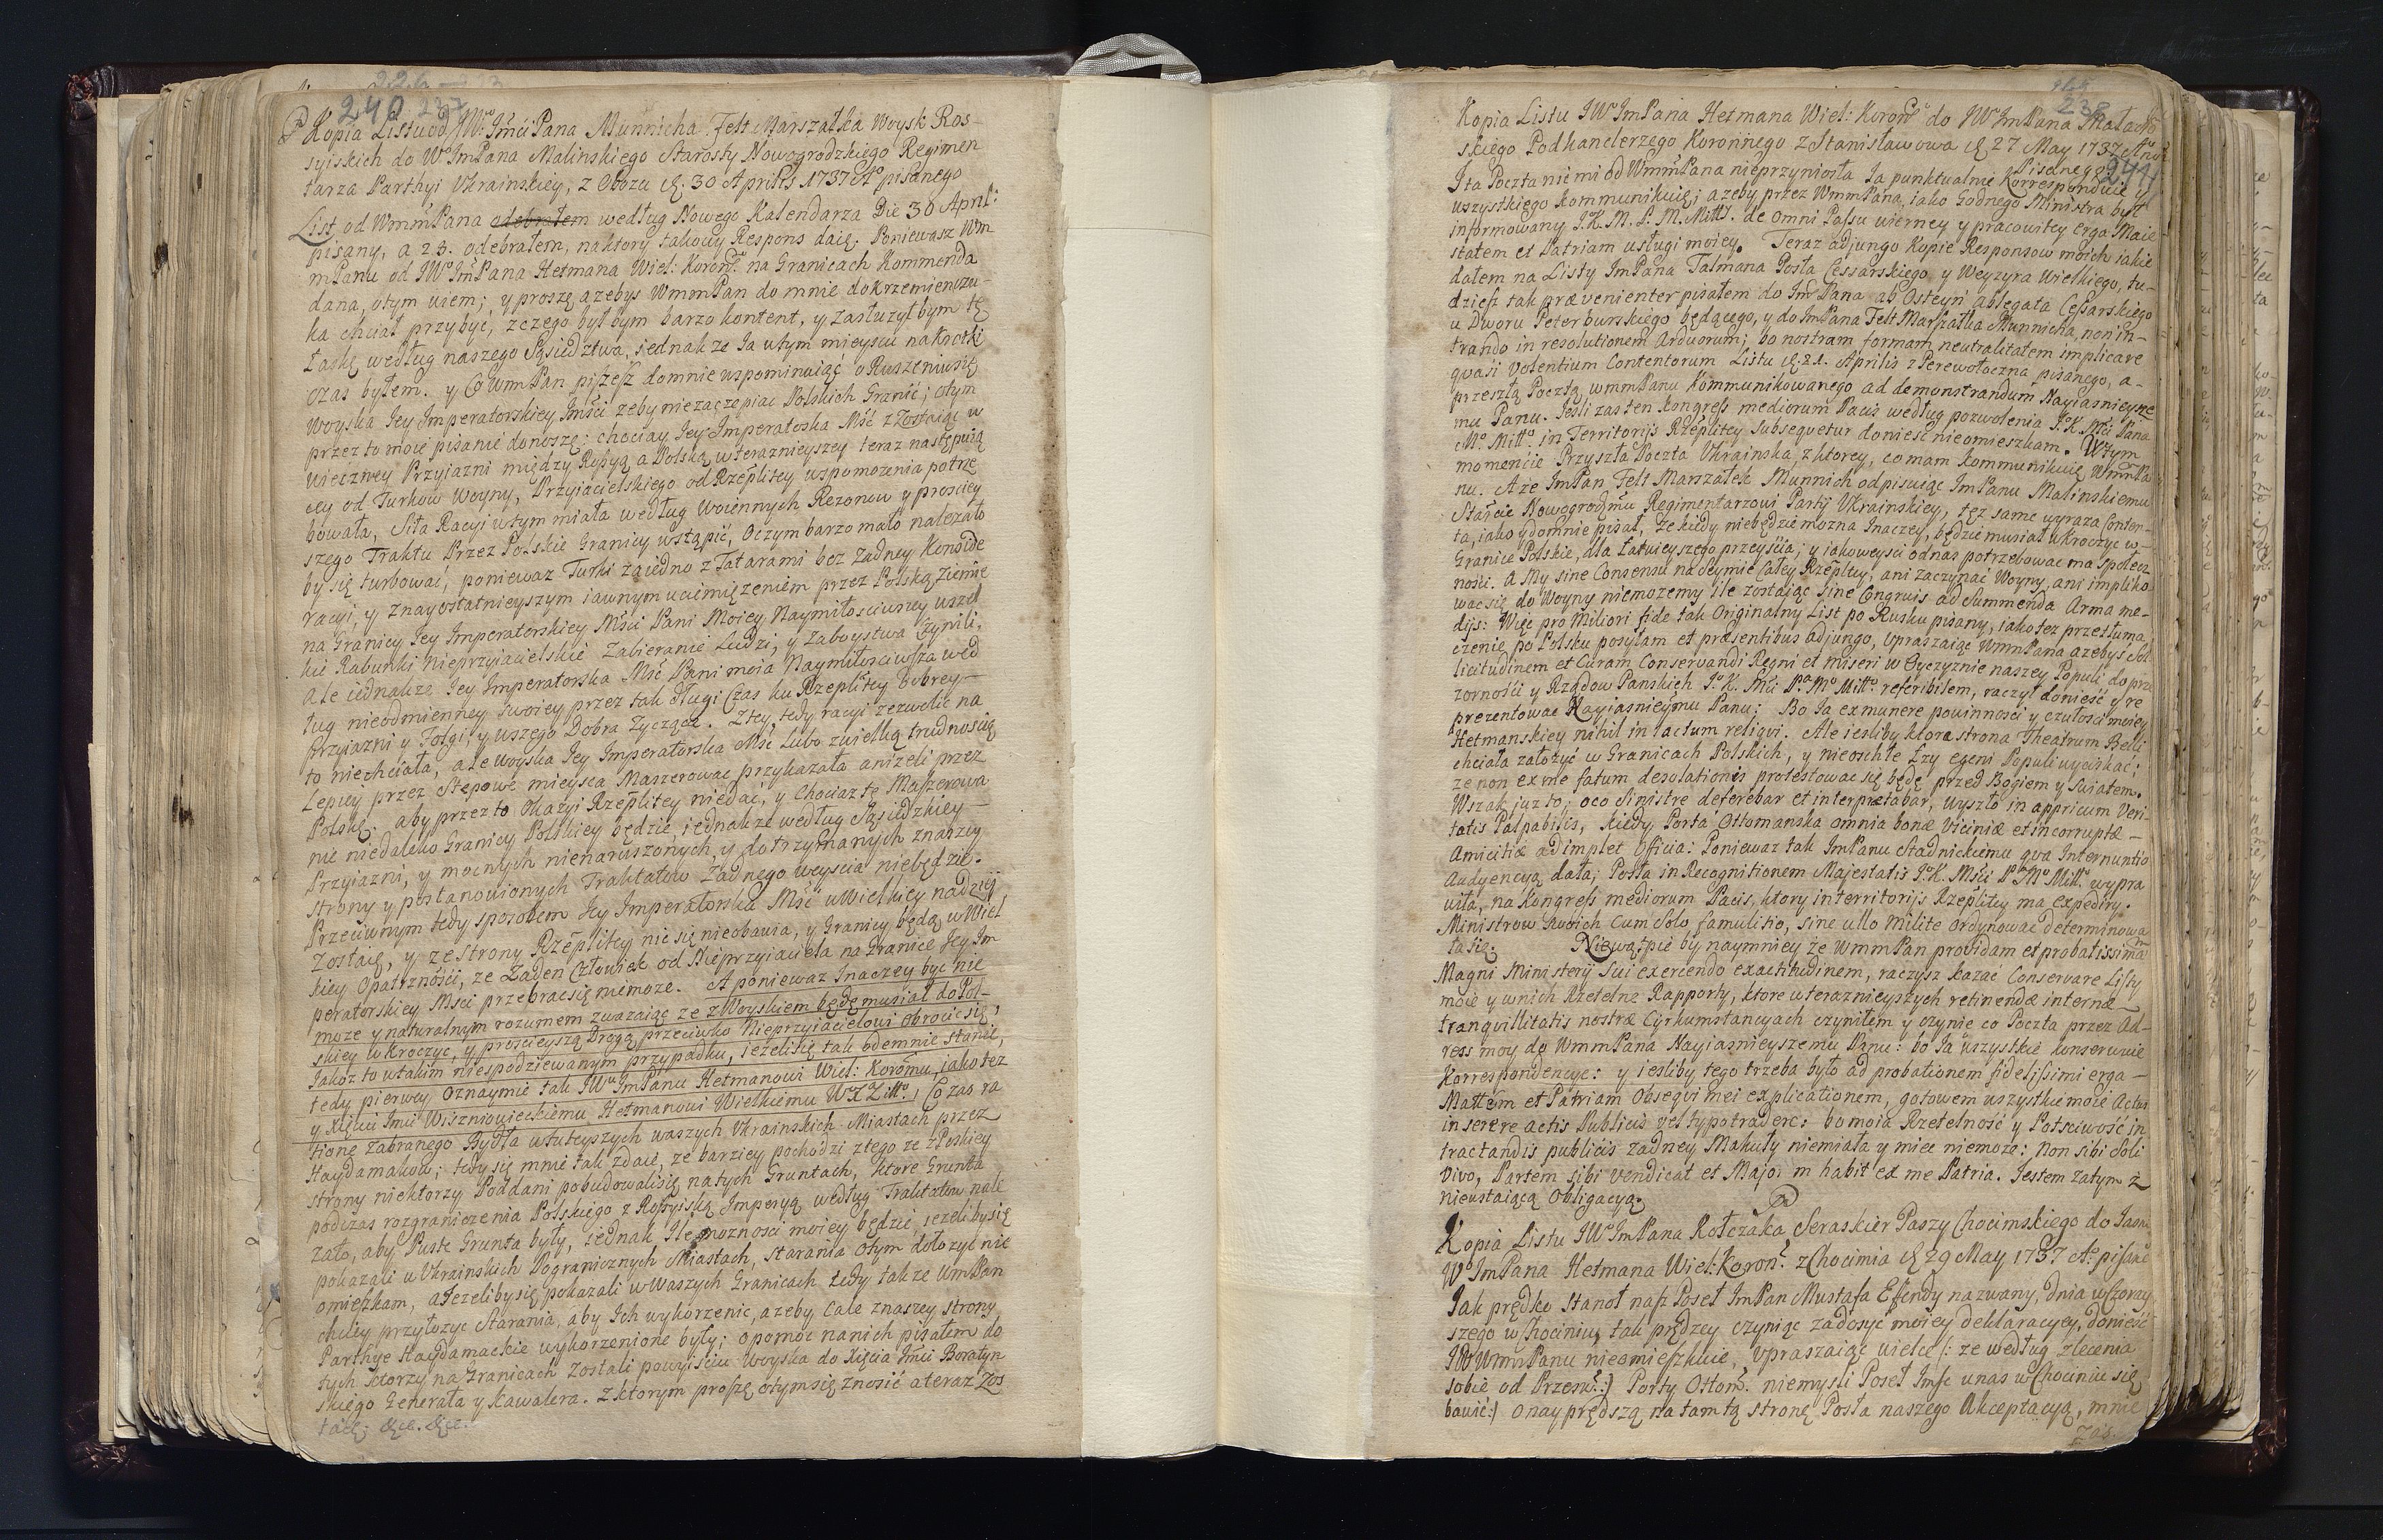 240 237
Kopia Listu od JWo Jmći Pana Munnicha Felt Marszałka Woysk Ros-
syiskich do Wo JmPana Malinskiego Starosty Nowogrodzkiego Regimen
tarza Parthyi Ukrainskiey, z Obozu d. 30 Aprilis 1737 Ao pisanego
List od WmmPana odebrałem według Nowego Kalendarza Die 30 April:
pisany, a 23. odebrałem, na ktory takowy Respons daię. Poniewasz Wm
mPanu od JWo JmPana Hetmana Wiel: Koronno na Granicach Kommenda
dana, o tym wiem; y proszę azebys WmmPan do mnie do Krzemienczu-
ka chciał przybyć, z czego byłbym barzo kontent, y zasłuzyłbym tę
łaskę według naszego Sąsiedztwa, iednakze Ja w tym mieyscu na krotki
czas byłem. y Co WmmPan piszesz do mnie wspominaiąć o Ruszeniu się
Woyska Jey Imperatorskiey Jmści zeby nie zaczepiac Polskich Granić; o tym
przez to moie pisanie donoszę; chociay Jey Imperatoska Mść z Zostaiąc w
wieczney Przyiazni między Rossyą a Polską, w teraznieyszey teraz następuią
cey od Turkow Woyny, Przyiacielskiego od Rzeplitey wspomozenia potrze
bowała, Siła Racyi w tym miała według Woiennych Rezonow y prosciey
szego Traktu Przez Polskie Granicy wstąpić, O czym barzo mało nalezało
by się turbować, poniewaz Turki zaiedno z Tatarami bez Zadney Konside
racyi, y z nayostatnieyszym iawnym uciemięzeniem przez Polską Ziemię
na Granicy Jey Imperatorskiey Mści Pani Moiey Naymiłosciwszey wszel
kie Rabunki nieprzyiacielskie Zabieranie Ludzi, y Zaboystwa Czynili.
Ale iednakze Jey Imperatorska Mść Pani moia Naymiłosciwsza wed
ług nieodmienney swoiey przez tak długi Czas ku Rzeplitey dobrey
Przyiazni y Folgi, y wszego Dobra Zycząca. Z tey tedy racyi zezwolic na
to niechciała, ale woyska Jey Imperatorska Mść Lubo z wielką trudnoscią
Lepiey przez Stepowe mieysca Maszerowac przykazała anizeli przez
Polskę. aby przez to Okazyi Rzeplitey nie dać, y Chociaz te Maszerowa
nie niedaleko Granicy Polskiey będzie, iednakze według Sąsiedzkiey
Przyiazni, y mocnych nienaruszonych, y dotrzymanych z naszey
strony y postanowionych Traktatow Zadnego weyscia niebędzie.
Przeciwnym tedy sposobem Jey Imperatorska Mść w Wielkiey nadziei
Zostaię, y ze Strony Rzeplitey nic się nieobawia, y Granicy będą w Wiel
kiey Opatrznosci, ze Zaden Człowiek od Nieprzyiaciela na Granice Jey Im
peratorskiey Mści przebrac się niemoze. A poniewaz Jnaczey byc nie
moze y naturalnym rozumem zwazaiąc ze z Woyskiem będę musiał do Pol-
skiey wkroczyc, y proscieyszą Drogą przeciwko Nieprzyiacielowi Obrocić się,
Jakoz to w takim niespodziewanym przypadku, iezeli się tak odemnie stanie,
tedy pierwey Oznaymie tak JWu JmPanu Hetmanowi Wiel: Koronmu, iako tez
y Xięciu Jmci Wiszniowieckiemu Hetmanowi Wielkiemu WXLitto, Co zas ra
tione Zabranego Bydła w tuteyszych waszych Ukrainskich Miastach przez
Haydamakow; tedy się mnie tak zdaie, ze barziey pochodzi z tego ze z Polskiey
strony niektorzy Poddani pobudowali się na tych Gruntach, ktore Grunta
podczas rozgraniczenia Polskiego z Rossyiską Imperyą według Traktatow nale
zało, aby Puste Grunta były, iednak Ile moznosci moiey będzie iezeliby się
pokazali w Ukrainskich Pogranicznych Miastach, Starania o tym dołozyc nie
omieszkam, a Jezeliby się pokazali w Waszych Granicach tedy takze WmPan
chciey przyłozyc Starania, aby Jch wykorzenic, azeby Cale z naszey strony
Parthye Haydamackie wykorzenione były; o pomoc na nich pisałem do
tych ktorzy na Granicach zostali powyisciu Woyska do Xięcia Jmci Boratyn
skiego Generała y Kawalera. z ktorym proszę o tym się znosić a teraz Zos
taię. &c. &c.
238
244
Kopia Listu JWo JmPana Hetmana Wiel: Koronno do JWo JmPana Małacho
skiego Podkanclerzego Koronnego z Stanisławowa d. 27 May 1737 Ano
Pisanego
I ta Poczta nic mi od WmmPana nieprzyniosła Ja punktualnie Korresponduię y
wszystkiego kommunikuię; azeby przez WmmPana, iako Godnego Ministra był
informowany J.K.M. P. M. Mitt. de Omni Passu wierney y pracowitey erga Maie
statem et Patriam usługi moiey. Teraz adjungo Kopie Responsow moich iakie
dałem na Listy JmPana Talmana Posła Cessarskiego y Weyzyra Wielkiego, tu-
dziesz tak prævenienter pisałem do JmPana ab Osteyn ablegata Cessarskiego
u Dworu Peterburskiego będącego, y do JmPana Felt Marszałka Munnicha, non in-
trando in resolutionem Arduorum; bo nostram formam neutralitatem implicare
qvasi Volentium Contentorum Listu d. 21. Aprilis z Perewołoczna pisanego, a-
przeszłą Pocztą WmmPanu Kommunikowanego ad demonstrandum Nayiasnieysze
mu Panu. Jesli zas ten Kongress mediorum Pacis według pozwolenia J.K. Mci Pana
Mo Mitto in Territorijs Rzeplitey Subsequetur doniesć nieomieszkam. W tym
momencie Przyszła Poczta Ukrainska, z ktorey, co mam kommunikuię WmmPa
nu. A ze JmPan Felt Marszałek Munnich odpisuiąc JmPanu Malinskiemu
Staście Nowogrodmu Regimentarzowi Partij Ukrainskiey, tęz same wyraza Conten-
ta, iako y do mnie pisał, Ze kiedy niebędzie mozna Jnaczey, będzie musiał wkroczyc w-
Granice Polskie, dla łatwieyszego przeyścia; y iakoweysci od nas potrzebowac ma społecz
nosci. A My sine Consensu na Seymie Całey Rzeplitey, ani zaczynać Woyny, ani impliko
wac się do Woyny niemozemy ile zostaiąc Sine Congruis ad Summenda Arma me-
dijs: Więc pro Miliori fide tak Originalny List po Rusku pisany, iako tez przetłuma
czenie po Polsku posyłam et præsentibus adjungo, Upraszaiąc WmmPana azebys Sol
licitudinem et Curam Conservandi Regni et miseri w Oyczyznie naszey Populi do prze
zornosci y Rządow Panskich J.K. Mci Pa Mo Mitto referibilem, raczył donieść y re
prezentowac Nayiasnieymu Panu: Bo Ja ex munere powinnosci y czułosci moiey
Hetmanskiey nihil intactum religvi. Ale iesliby ktora strona Theatrum Belli
chciała załozyć w Granicach Polskich, y nieoschłe Łzy egeni Populi wyciskać;
ze non ex me fatum desolationis protestowac się będę przed Bogiem y Swiatem.
Wszak juz to, o co Sinistre deferebar et interpretabar, wyszło in appricum Veri-
tatis Palpabilis, kiedy Porta Ottomanska omnia bonæ Viciniæ et incorruptæ -
Amicitiæ adimplet Officia: Poniewaz tak JmPanu Stadnickiemu qva Internuntio
Audyencyą dała; Posła in Recognitionem Majestatis J.K. Mści Pa Mo Mitto wypra
wiła, na Kongress mediorum Pacis, ktory in territorijs Rzeplitey ma Expediry.
Ministrow swoich Cum Solo famulitio, sine ullo Milite Ordynowac determinowa
ła się. Niewątpię by naymniey ze WmmPan providam et probatissimam
Magni Ministerij sui exercendo exactitudinem, raczysz kazac Conservare Listy
moie y w nich Rzetelne Rapporty, ktore w teraznieyszych retinendæ internæ
tranquillitatis nostræ Cyrkumstancyach czyniłem y czynię co Poczta przez Ad-
ress moy do WmmPana Nayiasnieyszemu Panu: bo Ja wszystkie konserwuię
Korrespondencye: y iesliby tego trzeba było ad probationem fidelissimi erga -
Mattem et Patriam Obseqvi mei explicationem, gotowem wszystkie moie Actus
inserere actis Publicis vel typo tradere: bo moia Rzetelność y Potsciwość in
tractandis publicis zadney Makuły niemiała y miec niemoze: Non sibi Soli
Vivo, Partem sibi Vendicat et Majorem habit ex me Patria. Jestem zatym z
nieustaiącą Obligacyą.
Kopia Listu JWo JmPana Kołczaka Seraskier Paszy Chocimskiego do Jasnie
Wo JmPana Hetmana Wiel: Koron: z Chocimia d. 29 May 1737 Ao pisane
Jak prędko Stanoł nasz Poseł JmPan Mustafa Efendy nazwany, dnia wczoray
szego w Chocimiu, tak prędzey czyniąc zadosyć moiey deklaracyey, donieść
JWWmmPanu nieomieszkuię, Vpraszaiąc wielce /: ze według zlecenia
sobie od Przesw: Porty Ottom: niemysli Poseł Jmsc u nas w Chocimiu się
bawić:/ o nayprędszą na tamtą stronę Posła naszego Akceptacyą, mnie
zas